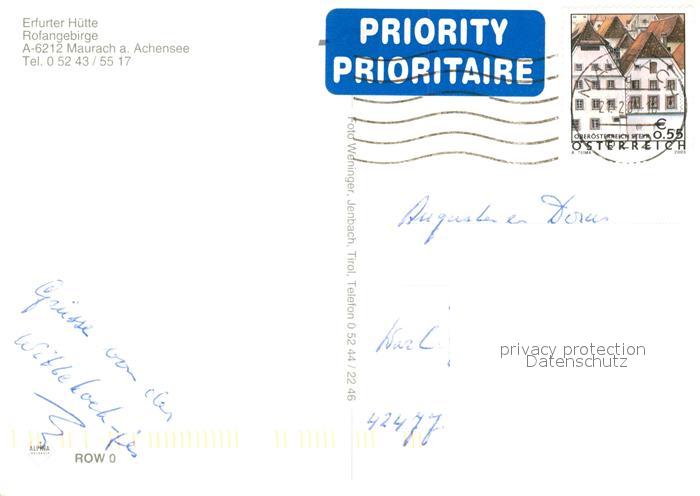 Erfurter Hütte
Rofangebirge
A-6212 Maurach a. Achensee
Tel. 0 52 43 / 55 17
PRIORITY
PRIORITAIRE
€
0.55
OBERÖSTERREICH STEYR
ÖSTERREICH
Foto Weninger, Jenbach, Tirol, Telefon 0 52 44 / 22 46
Grüsse von der
privacy protection
Datenschutz
42477
ALPINA
ROW 0